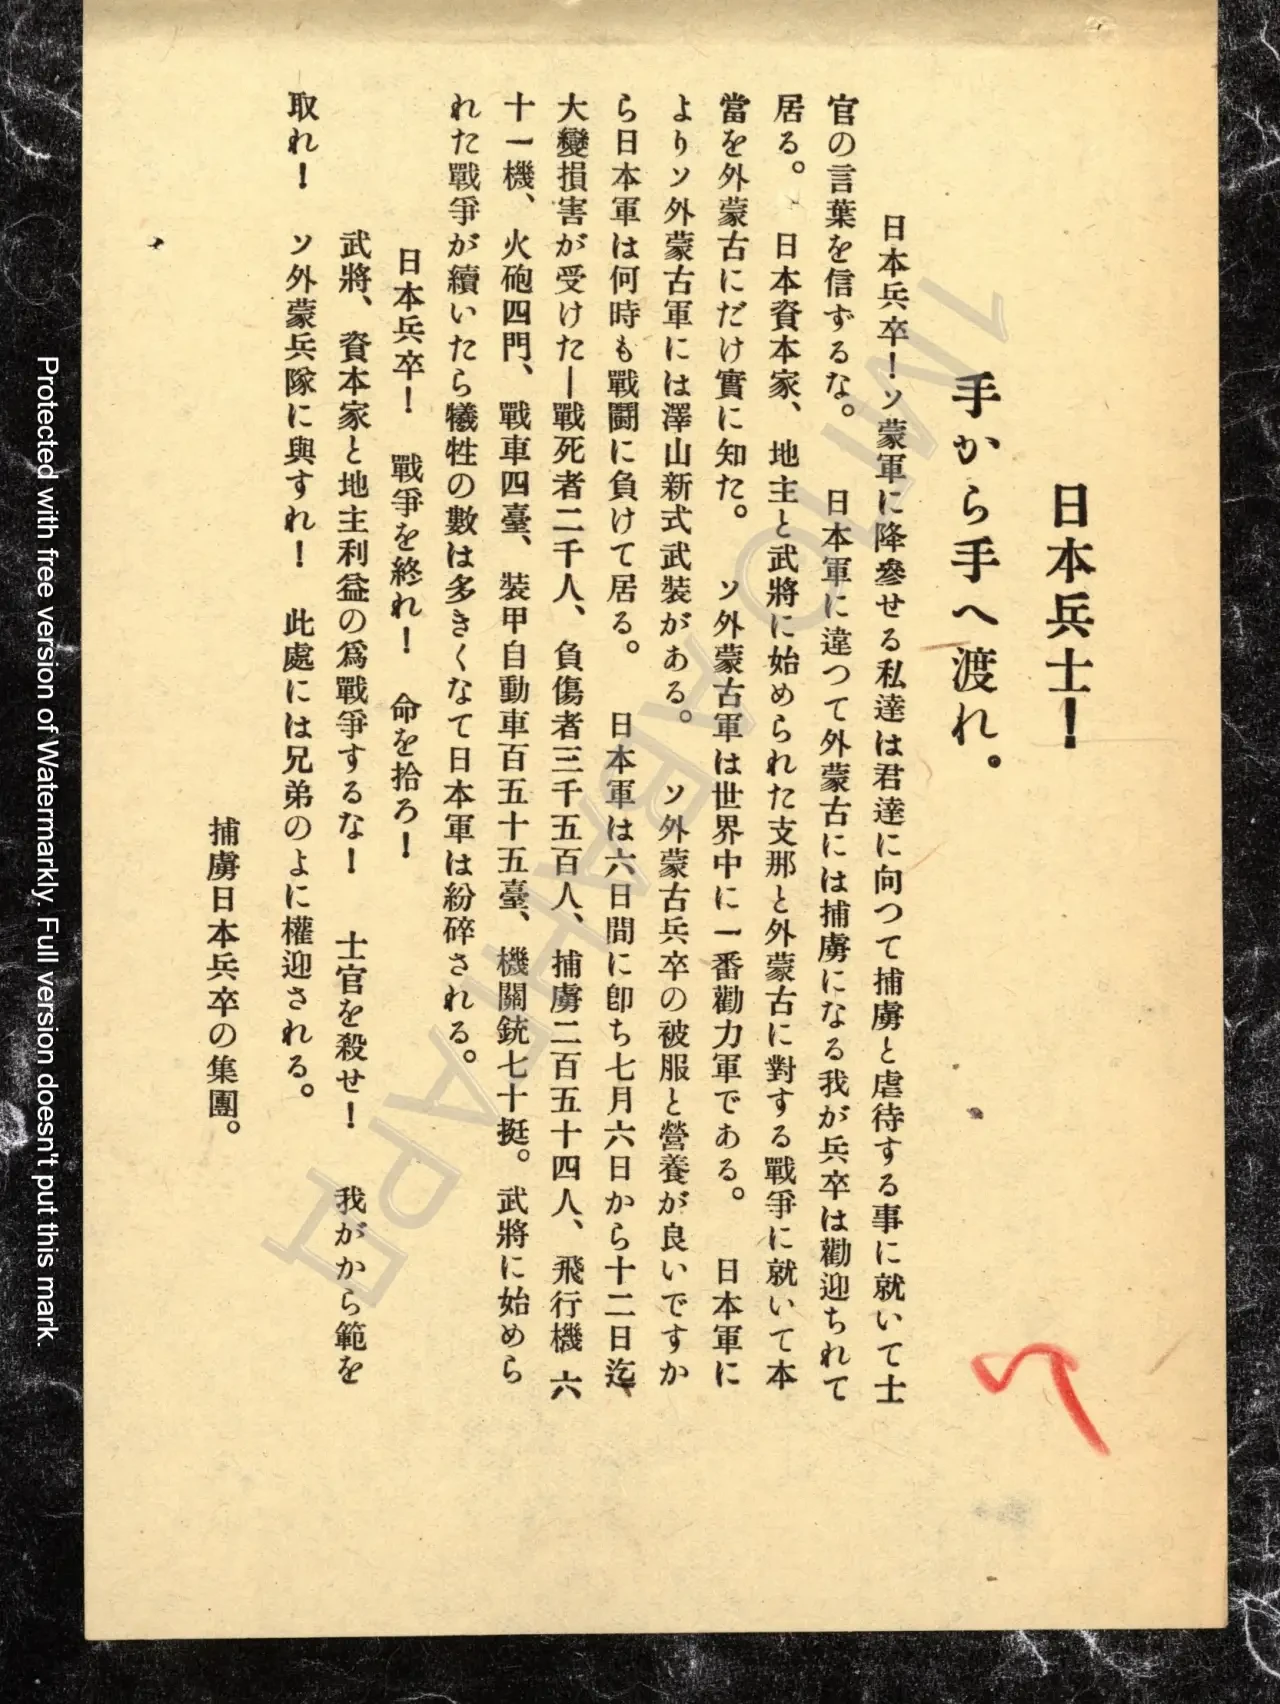 日本兵士!
手から手へ渡れ。
日本兵卒!ソ蒙軍に降參せる私達は君達に向つて捕虜と虐待する事に就いて士
官の言葉を信ずるな。 日本軍に違つて外蒙古には捕虜になる我が兵卒は勸迎ちれて
居る。 日本資本家、地主と武將に始められた支那と外蒙古に對する戰爭に就いて本
當を外蒙古にだけ實に知た。 ソ外蒙古軍は世界中に一番勸力軍である。 日本軍に
よりソ外蒙古軍には澤山新式武裝がある。 ソ外蒙古兵卒の被服と營養が良いですか
ら日本軍は何時も戰鬪に負けて居る。 日本軍は六日間に卽ち七月六日から十二日迄、
大變損害が受けた—戰死者二千人、負傷者三千五百人、捕虜二百五十四人、飛行機 六
十一機、火砲四門、戰車四臺、裝甲自動車百五十五臺、機關銃七十挺。武將に始めら
れた戰爭が續いたら犧牲の數は多きくなて日本軍は紛碎される。
日本兵卒! 戰爭を終れ! 命を拾ろ!
武將、資本家と地主利益の爲戰爭するな! 士官を殺せ! 我がから範を
取れ! ソ外蒙兵隊に與すれ! 此處には兄弟のよに權迎される。
捕虜日本兵卒の集團。
1MTO ABAHTAPD
Protected with free version of Watermarkly. Full version doesn't put this mark.